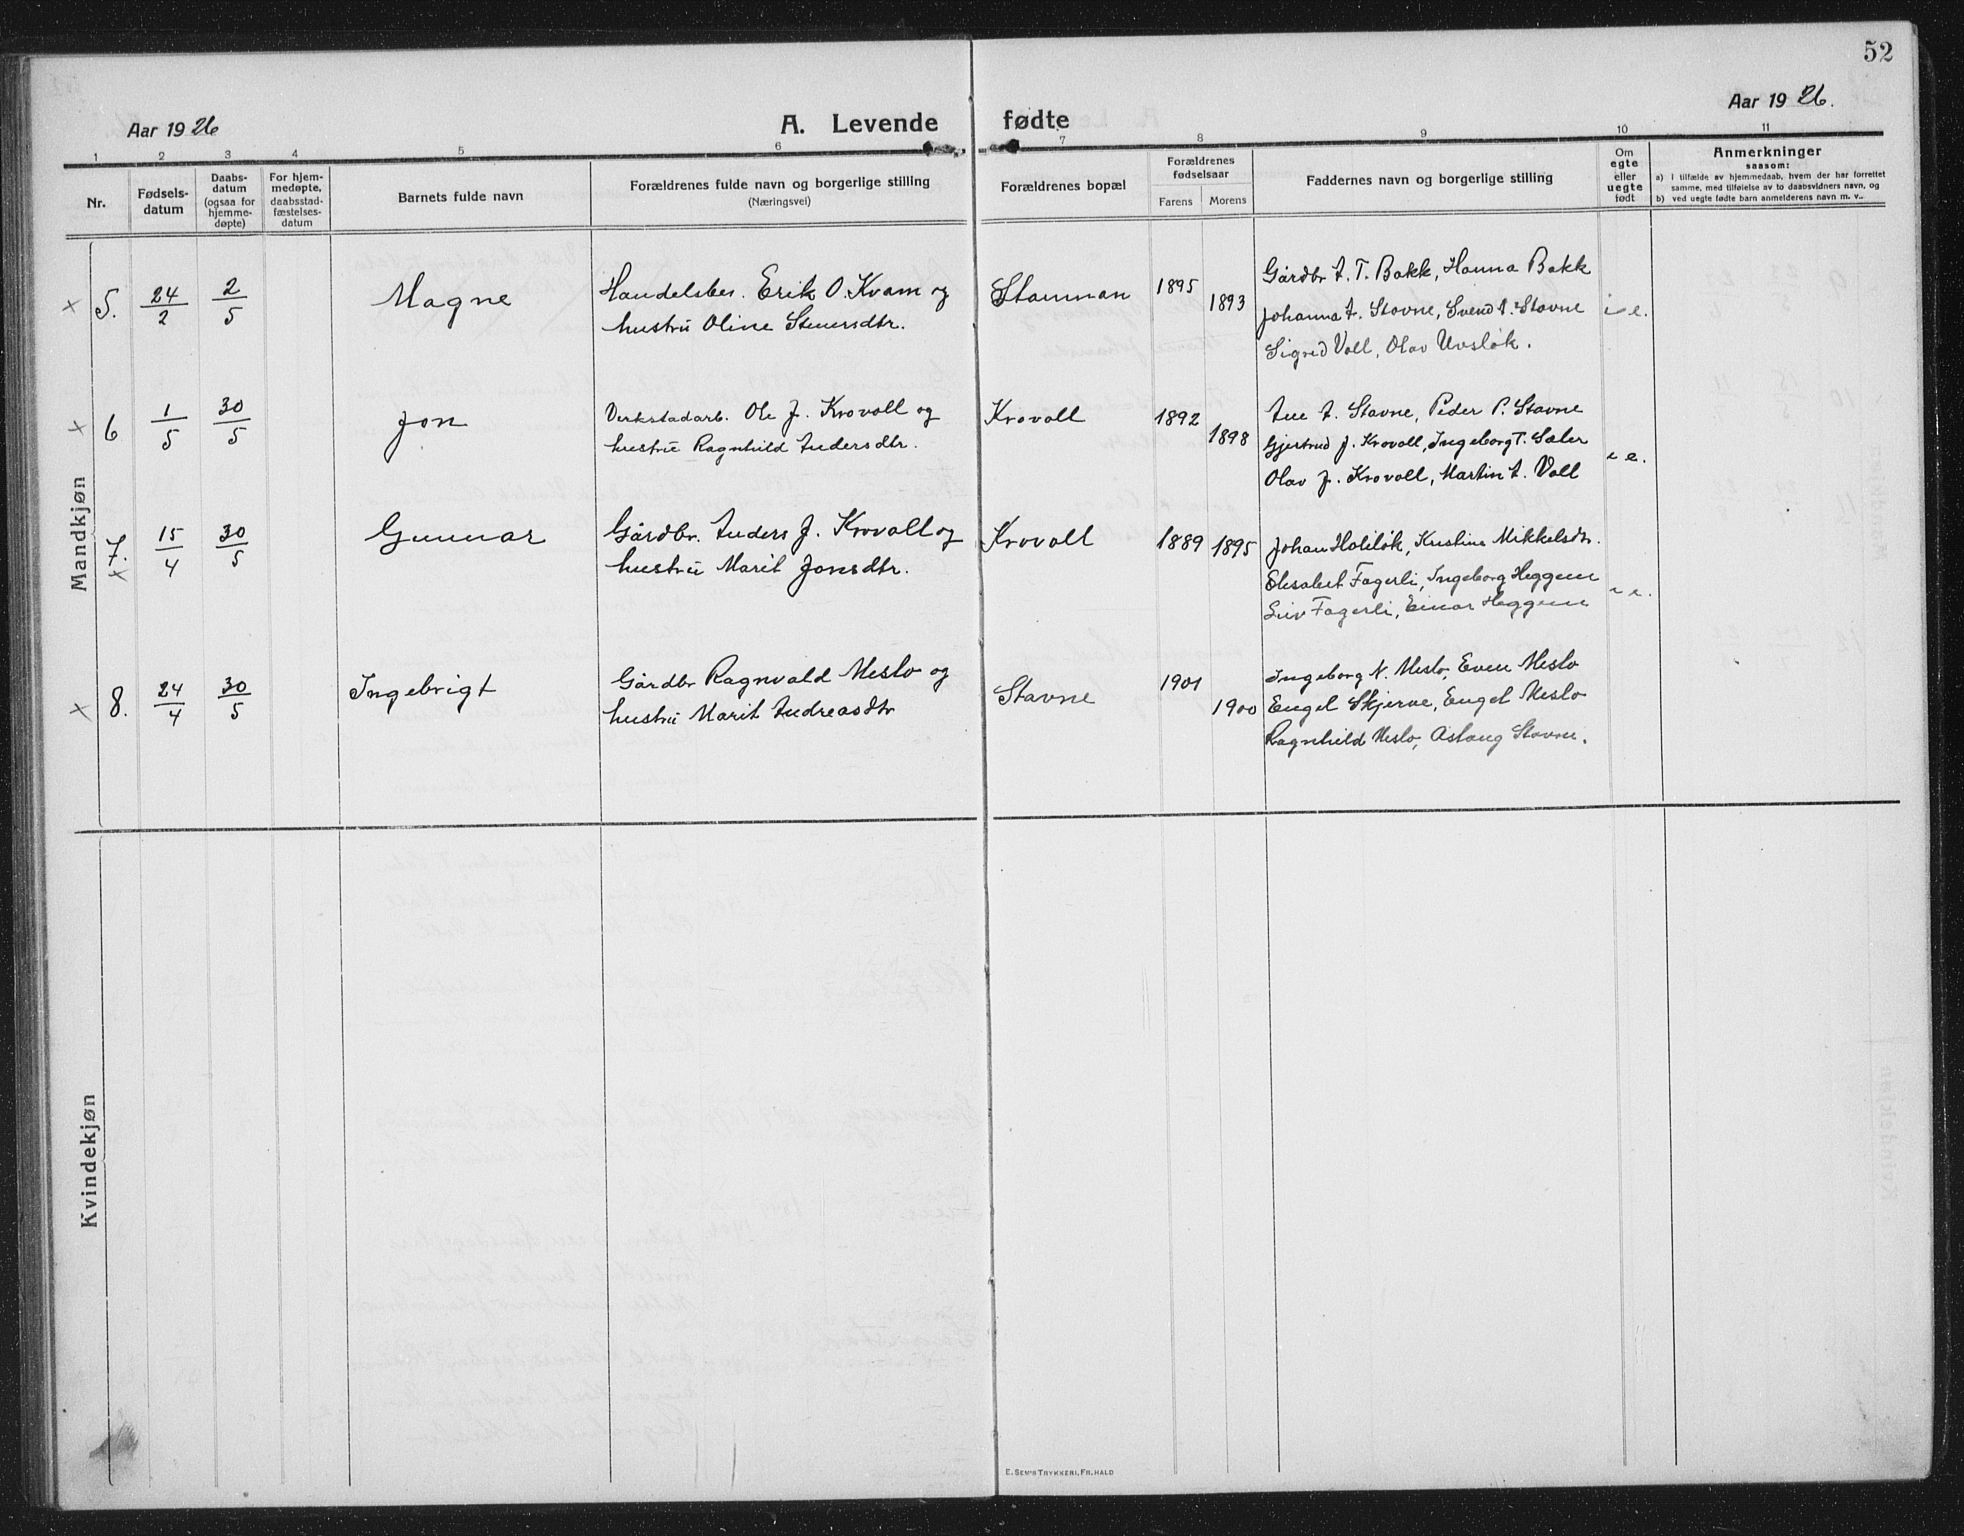 52
Aar 1926
A. Levende fødte
Aar 1926.
1 2 3 4 5 6 7 8 9 10 11
Nr.
Fødsels-
datum
Daabs-
datum
(ogsaa for
hjemme-
døpte)
For hjem-
medøpte,
daabsstad-
fæstelses-
datum
Barnets fulde navn
Forældrenes fulde navn og borgerlige stilling
(Næringsvei)
Forældrenes bopæl
Forældrenes
fødselsaar
Farens Morens
Faddernes navn og borgerlige stilling
Om
egte
eller
uegte
født
Anmerkninger
saasom:
a) I tilfælde av hjemmedaab, hvem der har forrettet
samme, med tilføielse av to daabsvidners navn, og
b) ved uegte fødte barn anmelderens navn m. v..
Mandkjøn
× 5. 24/2 2/5 Magne
Handelsbes. Erik O. Kvam og
hustru Oline Steuersdtr.
1895 1893
Gårdbr A. T. Bakk, Hanna Bakk
Johanna A. Stavne, Svend A. Stavne
Sigrid Voll, Olav Uvsløk.
i e.
× 6 1/5 30/5 Jon
Verkstadarb. Ole J. Krovoll og
hustru Ragnhild Andersdtr.
Krovoll 1892 1898
Ane A. Stavne, Peder P. Stavne
Gjertrud J. Krovoll, Ingeborg T. Sæter
Olav J. Krovoll, Martin A. Voll
i e.
× 7. 15/4 30/5 Gunnar
Gårdbr. Anders J. Krovoll og
hustru Marit Jonsdtr.
Krovoll 1889 1895
Johan Holiløk, Kristine Mikkelsdtr.
Elisabet Fagerli, Ingeborg Heggem
Liv Fagerli, Einar Heggem
i e.
× 8. 24/4 30/5 Ingebrigt
Gårdbr Ragnvald Meslo og
hustru Marit Andreasdtr
Stavne 1901 1900
Ingeborg N. Meslo, Even Meslo
Engel Skjerve, Engel Meslo
Ragnhild Meslo, Aslaug Stavne.
Kvindekjøn
E. SEM'S TRYKKERI, FR.HALD